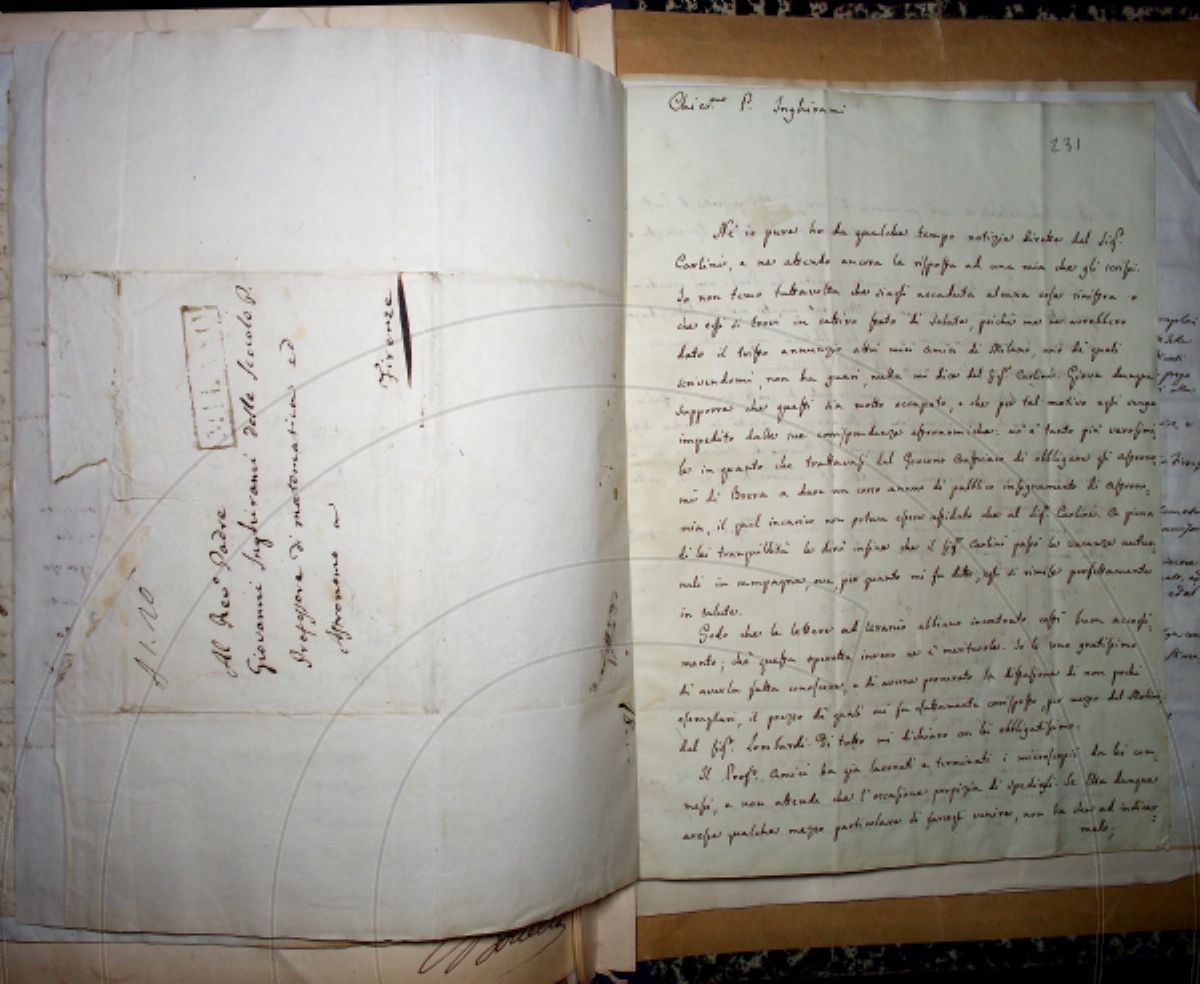 Al Rev.º Padre
Giovanni Inghirami delle Scuole P.
Professore di matematica ed
Astronomo a
Firenze
Chiar.mo P. Inghirami
231
Né io pure ho da qualche tempo notizie dirette dal Sig.r
Carlini, e ne attendo ancora la risposta ad una mia che gli scrissi.
Io non temo tuttavolta che siagli accaduta alcuna cosa sinistra o
che egli si trovi in cattivo stato di salute, poiché me ne avrebbero
dato il tristo annunzio altri miei amici di Milano, uno de' quali
scrivendomi, non ha guari, nulla mi dice del Sig.r Carlini. Giova dunque
supporre che questi sia molto occupato, e che per tal motivo egli venga
impedito dalle sue corrispondenze astronomiche: ciò è tanto più verosimi-
le in quanto che trattavasi dal Governo Austriaco di obbligare gli Astrono-
mi di Brera a dare un corso annuo di pubblico insegnamento di Astrono-
mia, il qual incarico non poteva essere affidato che al Sig.r Carlini. A piena
di lei tranquillità le dirò infine che il Sig.r Carlini passò le vacanze autun-
nali in campagna, ove, per quanto mi fu detto, egli si rimise perfettamente
in salute.
Godo che le lettere ad Uranio abbiano incontrato costì buon accogli-
mento; ché questa operetta invero ne è meritevole. Io le sono gratissimo
di averla fatta conoscere, e di averne procurato la diffusione di non pochi
esemplari, il prezzo de' quali mi fu esattamente corrisposto, per mezzo del Molini
dal Sig.r Lombardi. Di tutto mi dichiaro con lei obbligatissimo.
Il Prof.r Amici ha già lavorati e terminati i microscopii da lei com-
messi, e non attende che l'occasione propizia di spedirgli. Se Ella dunque
avesse qualche mezzo particolare di farsegli venire, non ha che ad indicar-
melo;